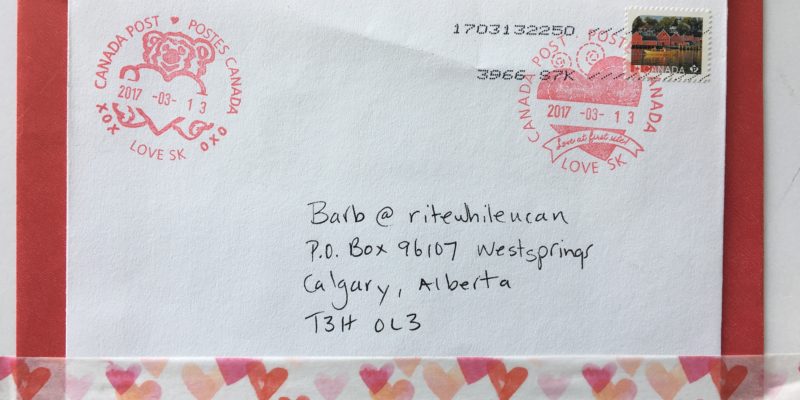 CANADA POST ♥ POSTES CANADA
2017 -03- 1 3
XOX OXO
LOVE SK
1703132250
3966 87K
CANADA
P
CANADA POST POSTES CANADA
2017 -03- 1 3
Love at first site!
LOVE SK
Barb @ ritewhileucan
P.O. Box 96107 Westsprings
Calgary, Alberta
T3H 0L3